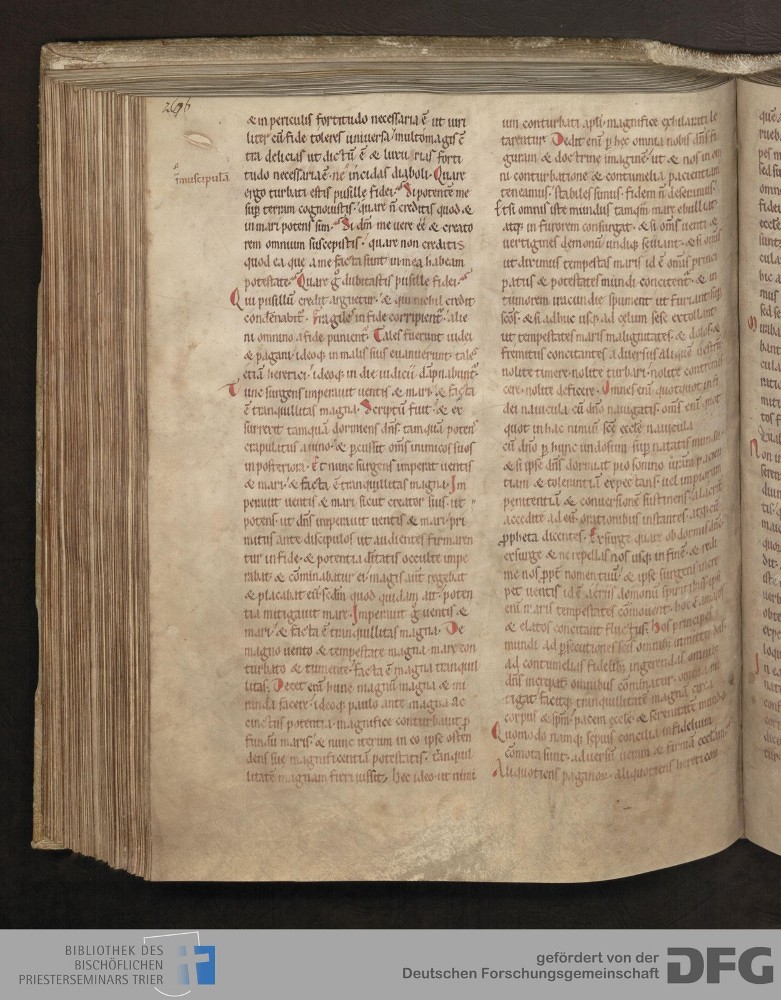 267b
& in periculis fortitudo necessaria ē ut uiri
liter cū fide toleres uniuersa multomagis ē
tra delicias ut dictū ē & luxurias forti
īmuscipulā
tudo necessaria ē ne incidas diaboli. Quare
ergo turbati estis pusille fidei. Si potentē me
sup̄ terram cognouistis. quare n̄ creditis quod &
in mari potens sim. Si dn̄m me uere eē & creato
rem omnium suscepistis. quare non creditis
quod ea que a me facta sunt in mea habeam
potestate. Quare g̊ dubitastis pusille fidei.
Qui pusillū credit arguetur. & qui nichil credit
condēnabit̄. Fragiles in fide corripient̄. alie
ni omnino a fide punient̄. Tales fuerunt iudei
& pagani ideoq; in malis suis euanuerunt. tales
etiā heretici. ideoq; in die iudicii dāpnabunt̄.
Tunc surgens imperauit uentis & mari. & facta
ē tranquillitas magna. Scriptū fuit. & ex
surrexit tamquā dormiens dn̄s tamquā potens
crapulatus a uino. & pcussit om̄s inimicos suos
in posteriora. Et nunc surgens imperat uentis
& mari. & facta ē tranquillitas magna. Im
perauit uentis & mari sicut creator suis. ut
potens ut dn̄s imperauit uentis & mari pri
mitus ante discipulos ut audientes firmaren
tur in fide. & potentia diitatis occulte impe
rabat & cōminabatur ei. magis aut̄ regebat
& placabat eū. Scdm̄ quod quidam ait. poten
tia mitigauit mare. Imperauit g̊ uentis &
mari. & facta ē tranquillitas magna. De
magno uento & tempestate magna mare con
turbato & tumente. facta ē magna tranquil
litas. Decet enī hunc magnū magna & mi
randa facere. ideoq; paulo ante magna ac
cinctus potentia. magnifice conturbauit p̄
fundū maris. & nunc iterum in eo ipse osten
dens sue magnificentiā potestatis. tāquil
litatē magnam fieri iussit. Hec ideo ut nimi
um conturbati apl̄i. magnifice exhilarati le
tarentur. Dedit enī p hec omnia nobis dn̄s fi
guram & doctrine imaginē ut & nos in om
ni conturbatione & contumelia pacientiam
teneamus. stabiles simus. fidem n̄ deseramus.
Et si omnis iste mundus tamqm̄ mare ebulliat
atq; in furorem consurgat. & si om̄s uenti &
uertigines demonū undiq; seuiant. & si omīs
ut diximus tempestas maris id ē om̄is princi
patus & potestates mundi concitent̄. & in
tumorem iracundie spument ut furiant sup
scōs. & si adhuc usq; ad celum sese extollant
ut tempestates maris malignitates. & dolos &
fremitus concitantes a diuersis
nolite timere. nolite turbari. nolite contremis
cere. nolite deficere. Omnes enī quotquot in fi
dei nauicula cū dn̄o nauigatis. om̄s enī quot
quot in hac nimirū scē eccle nauicula
cū dn̄o p hunc undosum sup natatis mundum
& si ipse dn̄s dormiat pio somno
tiam & tolerantiā expectans. uel impiorum
penitentiā & conuersionē sustinens. alacriter
accedite ad eū. orationibus instantes. atq; cū
propheta dicentes. Exsurge quare obdormis dn̄e.
exsurge & ne repellas nos usq; in finē. & redi
me nos ppt̄ nomen tuū. & ipse surgens
pet uentis id ē aeriis demonū spiritibus ipsi
enī maris tempestates cōmouent. hoc ē
& elatos concitant fluctus. hos principes
mundi ad psecutiones scōs omnib;
ad contumelias fidelib; ingerendas
dn̄s increpat. omnibus cōminatur. omnia mi
tigat. facitq; tranquillitatē magnā circa
corpus & spm̄. pacem eccle & serenitatē mundo
Quomodo namq; sepius concilia infidelium
cōmota sunt. aduersū uerum & firmā ecclesiam.
Aliquotiens paganorum. aliquotiens hereticorum
BIBLIOTHEK DES
BISCHÖFLICHEN
PRIESTERSEMINARS TRIER
gefördert von der
Deutschen Forschungsgemeinschaft
DFG